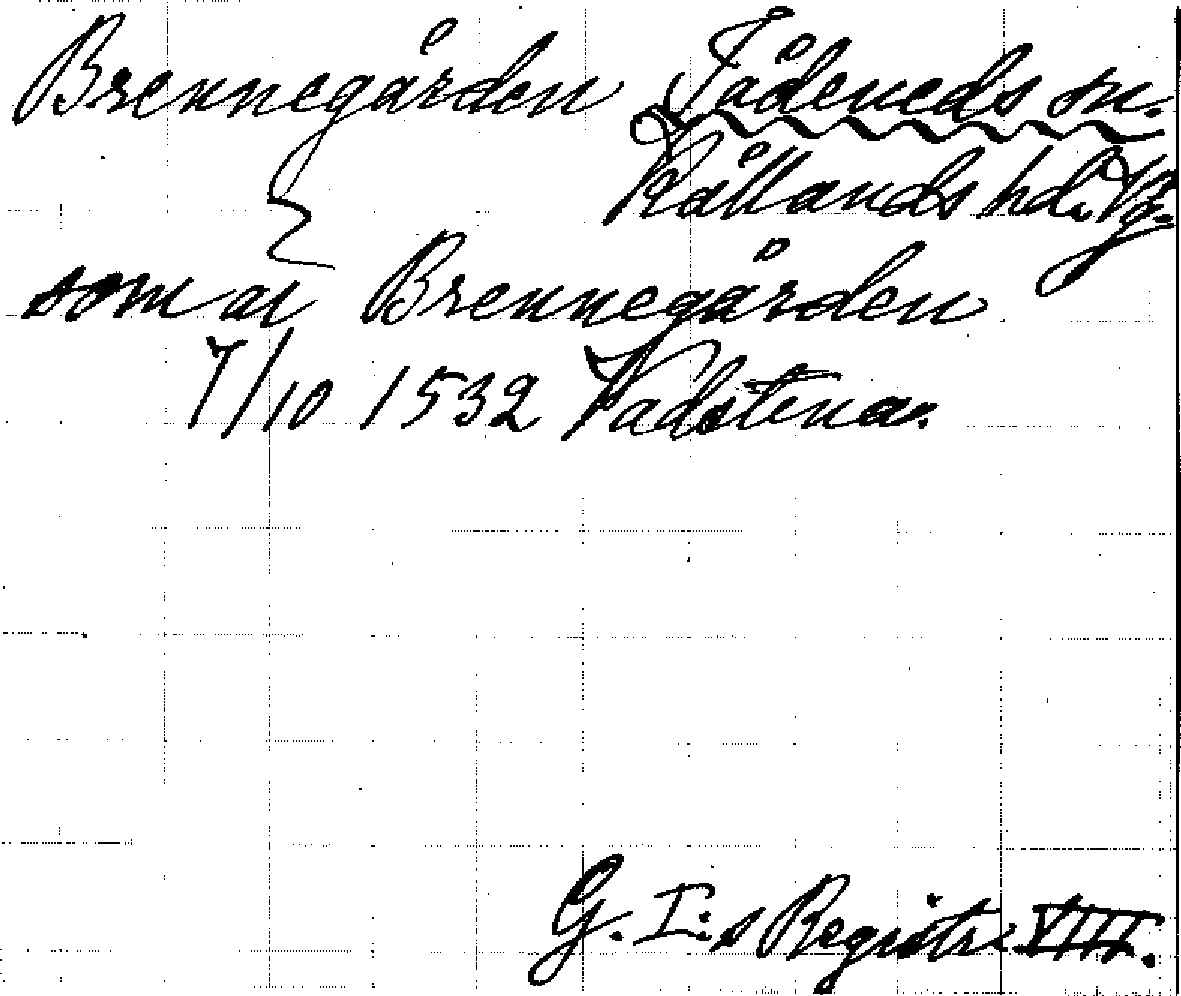 Brennegården Tådeneds sn.
Kållands hd. Vg.
som ar Brennegården
7/10 1532 Vadstena.
G. I:s Registr. VIII.